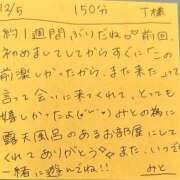 12/5 150分 T様
約1週間ぶりだね♡♡前回、
初めましてしてからすぐに「この
前楽しかったから、また来た」って
言って会いに来てくれて、とっても
嬉しかったよ(˶ᵕ˶)♡みとの為に
露天風呂のあるお部屋にして
くれてありがとう♡また、いつでも
一緒に遊んでね!!
みと